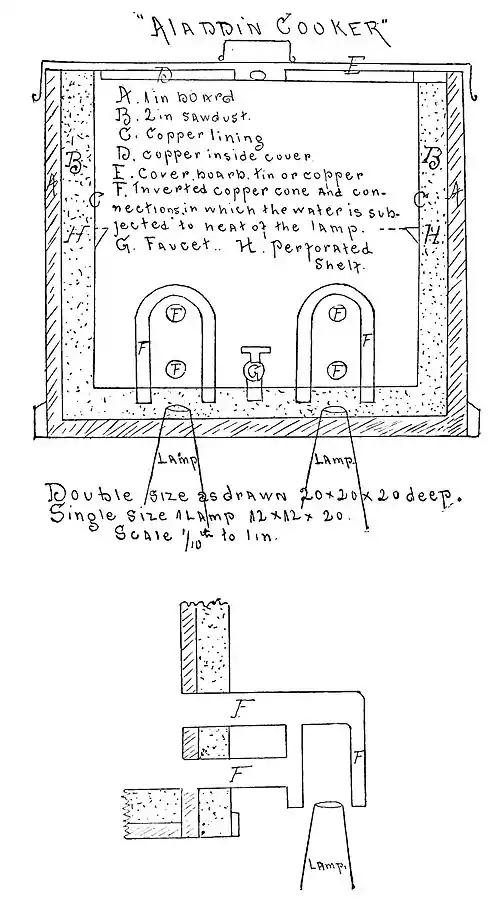 "ALADDIN COOKER"
D
E
A. 1 in board
B. 2 in sawdust.
C. Copper lining
D. copper inside cover
E. Cover, board, tin or copper
F. Inverted copper cone and con-
nections, in which the water is sub-
jected to heat of the lamp.
G. Faucet.. H. perforated
Shelf.
B
B
A
A
C
C
H
H
F
F
F
F
F
F
G
Lamp
Lamp.
Double size as drawn 20 x 20 x 20 deep.
Single size 1 Lamp 12 x 12 x 20.
Scale 1/10th to 1 in.
F
F
F
Lamp.